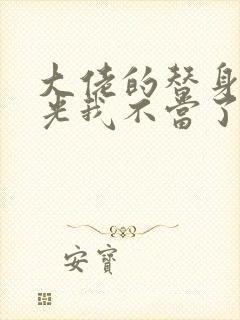 大佬的替身
光我不當了
安寶